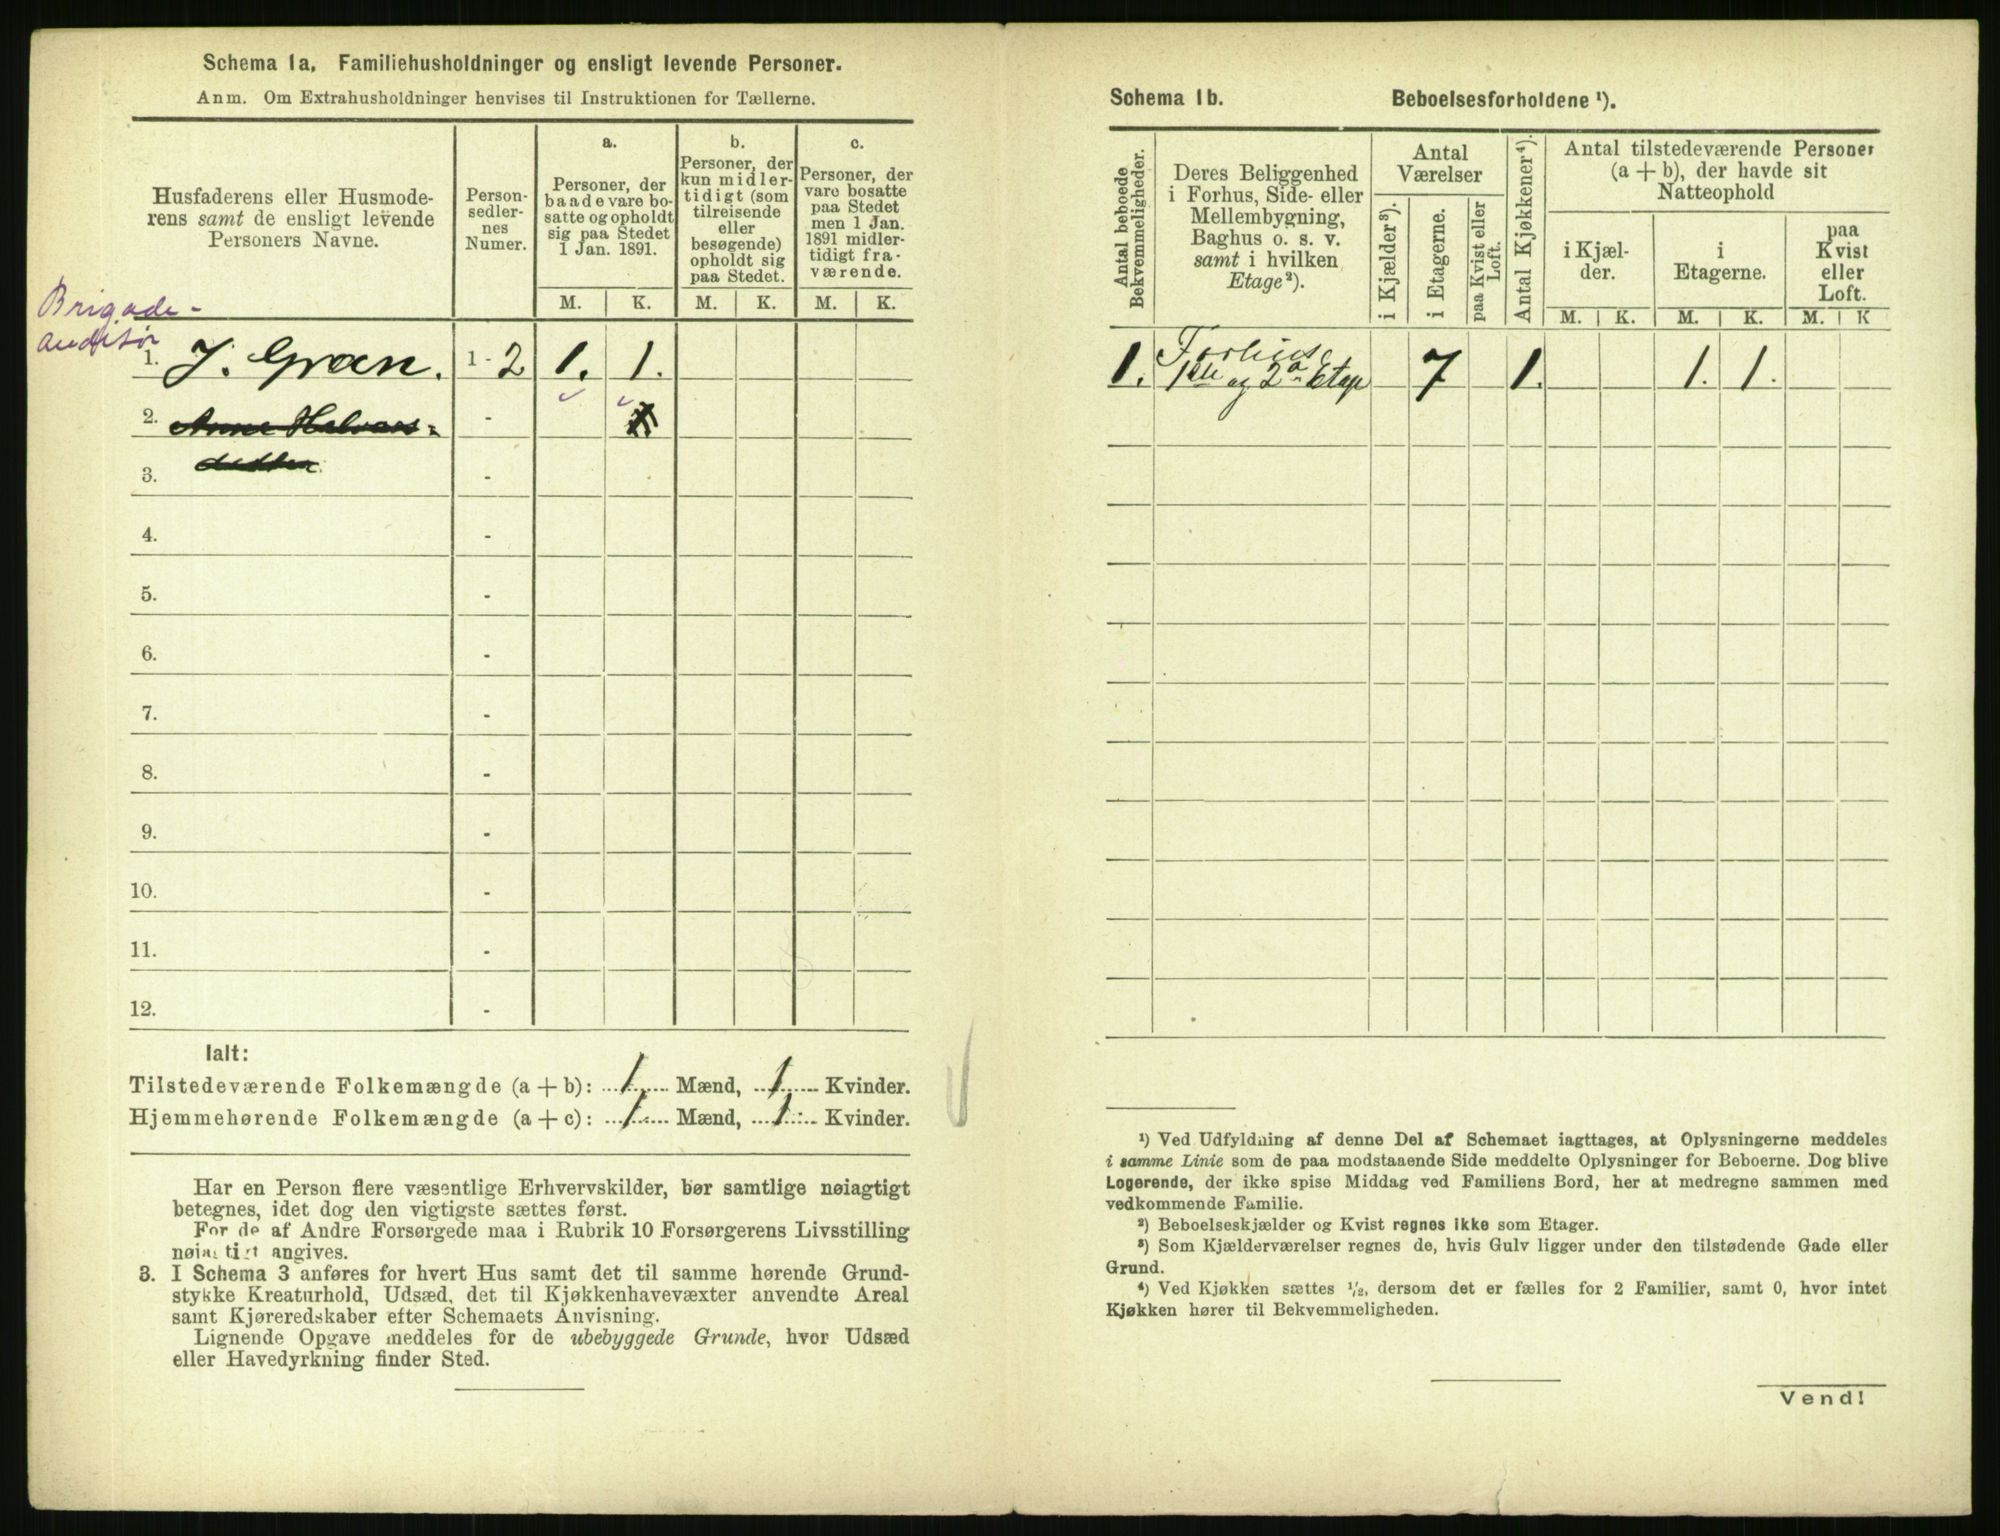 Schema 1a. Familiehusholdninger og ensligt levende Personer.
Anm. Om Extrahusholdninger henvises til Instruktionen for Tællerne.
Husfaderens eller Husmode-
rens samt de ensligt levende
Personers Navne.
Person-
sedler-
nes
Numer.
a.
Personer, der
baade vare bo-
satte og opholdt
sig paa Stedet
1 Jan. 1891.
b.
Personer, der
kun midler-
tidigt (som
tilreisende
eller
besøgende)
opholdt sig
paa Stedet.
c.
Personer, der
vare bosatte
paa Stedet
men 1 Jan.
1891 midler-
tidigt fra-
værende.
M. K. M. K. M. K.
Brigade-
auditør
1. J. Gran. 1-2 1. 1.
2. Anne Halvors= -
3. datter -
4. -
5. -
6. -
7. -
8. -
9. -
10. -
11. -
12. -
Ialt:
Tilstedeværende Folkemængde (a+b): 1 Mænd, 1 Kvinder.
Hjemmehørende Folkemængde (a+c): 1 Mænd, 1 Kvinder.
Har en Person flere væsentlige Erhvervskilder, bør samtlige nøiagtigt
betegnes, idet dog den vigtigste sættes først.
For de af Andre Forsørgede maa i Rubrik 10 Forsørgerens Livsstilling
nøiagtigt angives.
3. I Schema 3 anføres for hvert Hus samt det til samme hørende Grund-
stykke Kreaturhold, Udsæd, det til Kjøkkenhavevæxter anvendte Areal
samt Kjøreredskaber efter Schemaets Anvisning.
Lignende Opgave meddeles for de ubebyggede Grunde, hvor Udsæd
eller Havedyrkning finder Sted.
Schema 1b. Beboelsesforholdene ¹).
Antal beboede
Bekvemmeligheder.
Deres Beliggenhed
i Forhus, Side- eller
Mellembygning,
Baghus o. s. v.
samt i hvilken
Etage²).
Antal
Værelser
i Kjælder³).
i Etagerne.
paa Kvist eller
Loft.
Antal Kjøkkener⁴).
Antal tilstedeværende Personer
(a + b), der havde sit
Natteophold
i Kjæl-
der.
i
Etagerne.
paa
Kvist
eller
Loft.
M. K. M. K. M. K
1. Forhuse
1ste og 2den Etage 7 1. 1. 1.
¹) Ved Udfyldning af denne Del af Schemaet iagttages, at Oplysningerne meddeles
i samme Linie som de paa modstaaende Side meddelte Oplysninger for Beboerne. Dog blive
Logerende, der ikke spise Middag ved Familiens Bord, her at medregne sammen med
vedkommende Familie.
²) Beboelseskjælder og Kvist regnes ikke som Etager.
³) Som Kjælderværelser regnes de, hvis Gulv ligger under den tilstødende Gade eller
Grund.
⁴) Ved Kjøkken sættes ½, dersom det er fælles for 2 Familier, samt 0, hvor intet
Kjøkken hører til Bekvemmeligheden.
Vend!